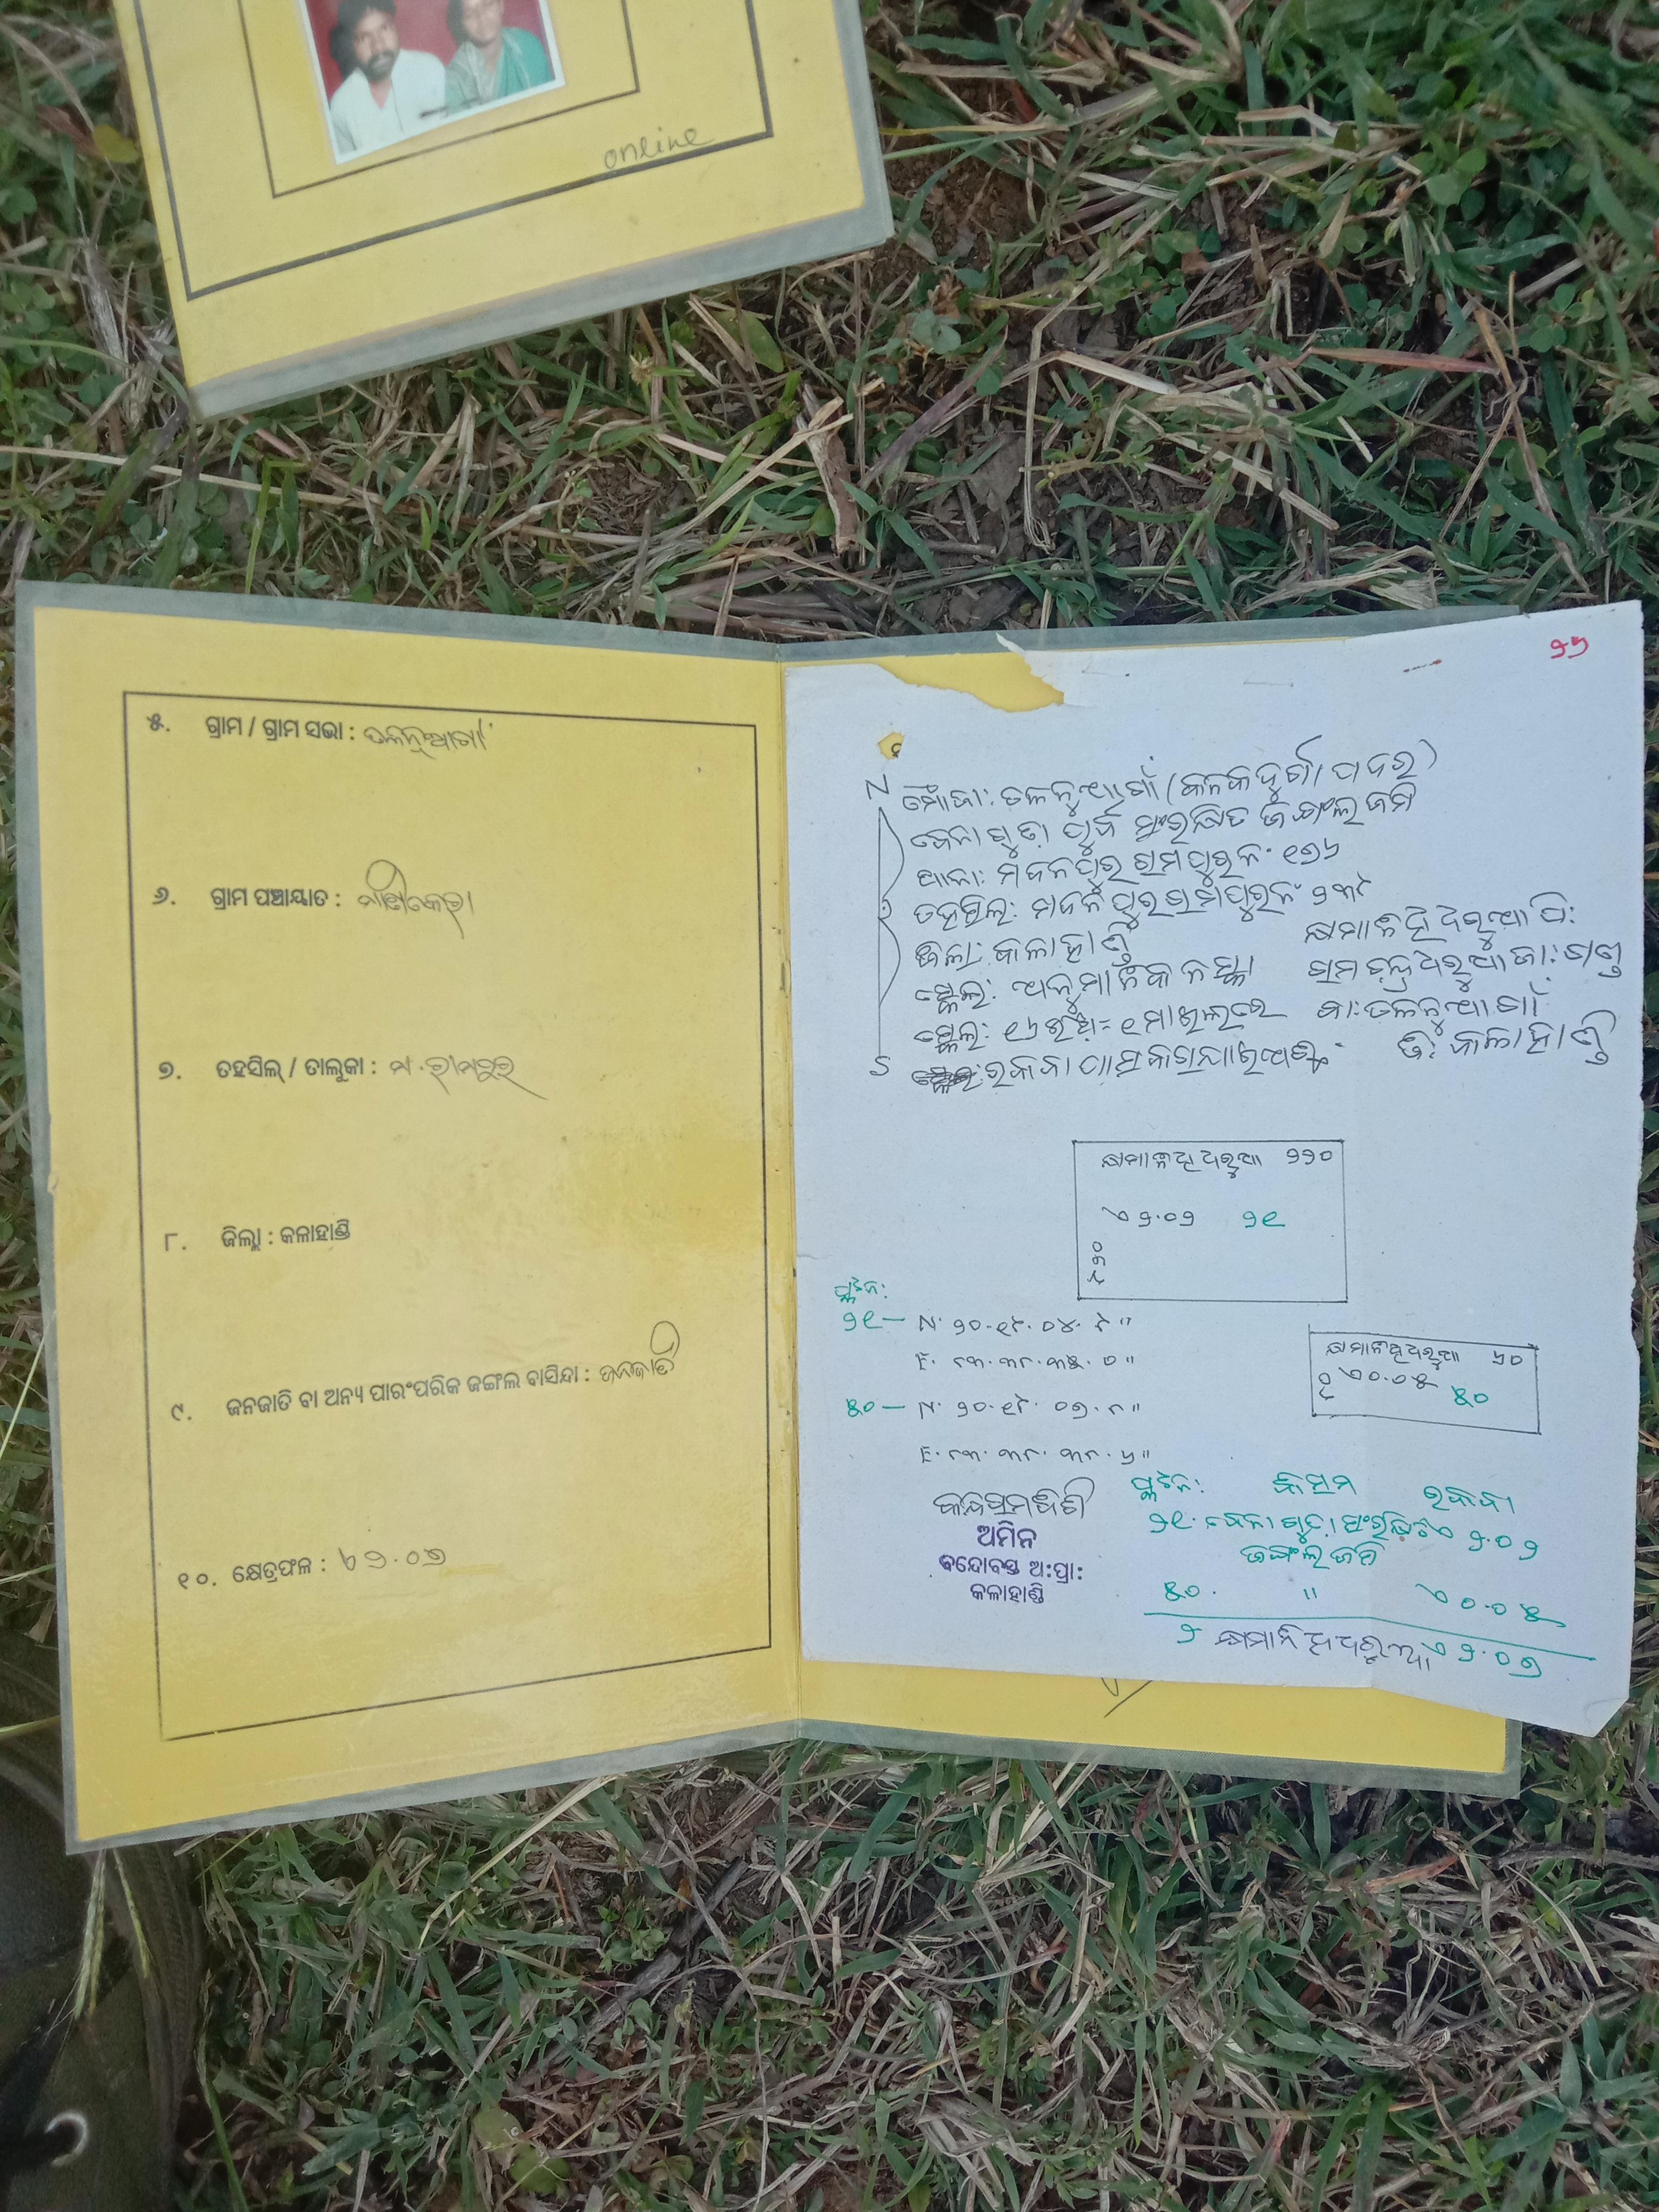 online
୫. ଗ୍ରାମ / ଗ୍ରାମ ସଭା : ତଳନୁଆଗାଁ
୬. ଗ୍ରାମ ପଞ୍ଚାୟାତ :
୭. ତହସିଲ୍ / ତାଲୁକା : ମ.ରାମପୁର
୮. ଜିଲ୍ଲା : କଳାହାଣ୍ଡି
୯. ଜନଜାତି ବା ଅନ୍ୟ ପାରଂପରିକ ଜଙ୍ଗଲ ବାସିନ୍ଦା : ଜନଜାତି
୧୦. କ୍ଷେତ୍ରଫଳ : ୨.୦୭
୨୨
N
ମୌଜା: ତଳନୁଆଗାଁ (କନକଦୁର୍ଗା ପଦର)
ସଂରକ୍ଷିତ ଜଙ୍ଗଲ ଜମି
ଥାନା: ମଦନପୁର ରାମପୁର ନଂ ୧୭୬
ତହସିଲ: ମଦନପୁର ରାମପୁର ନଂ ୨୩୯
ଜିଲ୍ଲା: କଳାହାଣ୍ଡି
ସ୍କେଲ: ଅନୁମାନିକ ନକ୍ସା
ସ୍କେଲ: ୧୬ ଇଞ୍ଚ = ୧ ମାଇଲରେ
S
କ୍ଷମାନିଧି ଧରୁଆ ପି:
ରାମଚନ୍ଦ୍ର ଧରୁଆ ଜା: ଗଣ୍ଡ
ସା: ତଳନୁଆଗାଁ
ଜି: କଳାହାଣ୍ଡି
କ୍ଷମାନିଧି ଧରୁଆ ୨୨୦
୨.୦୨ ୨୧
ପ୍ଲଟ ନଂ:
୨୧ — N. ୨୦.୧୯.୦୪.୯"
E. ୮୩.୩୮.୩୫.୦"
୫୦ — N. ୨୦.୧୯.୦୭.୮"
E. ୮୩.୩୮.୩୮.୬"
କ୍ଷମାନିଧି ଧରୁଆ ୬୦
୦.୦୫
୫୦
ଅମିନ
ବନ୍ଦୋବସ୍ତ ଅ:ପ୍ରା:
କଳାହାଣ୍ଡି
ପ୍ଲଟ ନଂ: କିସମ ରକବା
୨୧. ସଂରକ୍ଷିତ ୨.୦୨
ଜଙ୍ଗଲ ଜମି
୫୦. " ୦.୦୫
୨ କ୍ଷମାନିଧି ଧରୁଆ ୨.୦୭